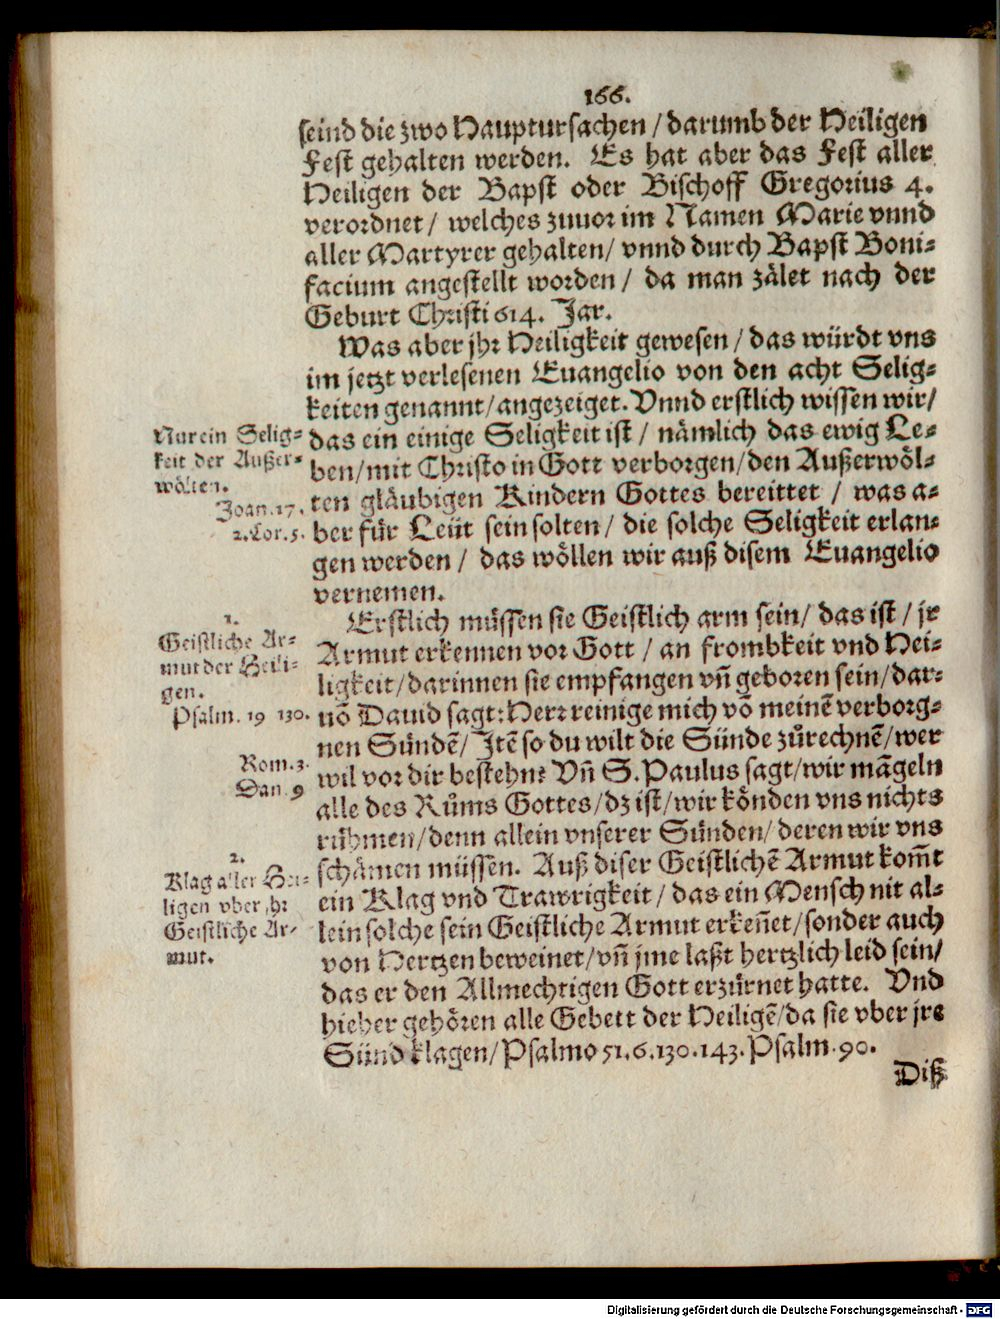 166.
seind die zwo Hauptursachen / darumb der Heiligen
Fest gehalten werden. Es hat aber das Fest aller
Heiligen der Bapst oder Bischoff Gregorius 4.
verordnet / welches zuuor im Namen Marie vnnd
aller Martyrer gehalten / vnnd durch Bapst Boni-
facium angestellt worden / da man zälet nach der
Geburt Christi 614. Jar.
Was aber jhr Heiligkeit gewesen / das würdt vns
im jetzt verlesenen Euangelio von den acht Selig-
keiten genannt / angezeiget. Vnnd erstlich wissen wir /
das ein einige Seligkeit ist / nämlich das ewig Le-
ben / mit Christo in Gott verborgen / den Außerwöl-
ten gläubigen Kindern Gottes bereittet / was a-
ber für Leüt sein solten / die solche Seligkeit erlan-
gen werden / das wöllen wir auß disem Euangelio
vernemen.
Nur ein Selig-
keit der Außer-
wölten.
Joan. 17.
2. Cor. 5.
Erstlich müssen sie Geistlich arm sein / das ist / jr
Armut erkennen vor Gott / an frombkeit vnd Hei-
ligkeit / darinnen sie empfangen vn̄ geboren sein / dar-
nō Dauid sagt: Herr reinige mich vō meinē verborg-
nen Sündē / Itē so du wilt die Sünde zůrechnē / wer
wil vor dir bestehn? Vn̄ S. Paulus sagt / wir māgeln
alle des Růms Gottes / dz ist / wir könden vns nichts
rühmen / denn allein vnserer Sünden / deren wir vns
schämen müssen. Auß diser Geistlichē Armut kom̄t
ein Klag vnd Trawrigkeit / das ein Mensch nit al-
lein solche sein Geistliche Armut erken̄et / sonder auch
von Hertzen beweinet / vn̄ jme laßt hertzlich leid sein /
das er den Allmechtigen Gott erzürnet hatte. Vnd
hieher gehören alle Gebett der Heiligē / da sie vber jre
Sünd klagen / Psalmo 51. 6. 130. 143. Psalm. 90.
1.
Geistliche Ar-
mut der Heili-
gen.
Psalm. 19 130.
Rom. 3.
Dan. 9
2.
Klag aller Hei-
ligen vber jhr
Geistliche Ar-
mut.
Diß
Digitalisierung gefördert durch die Deutsche Forschungsgemeinschaft - DFG